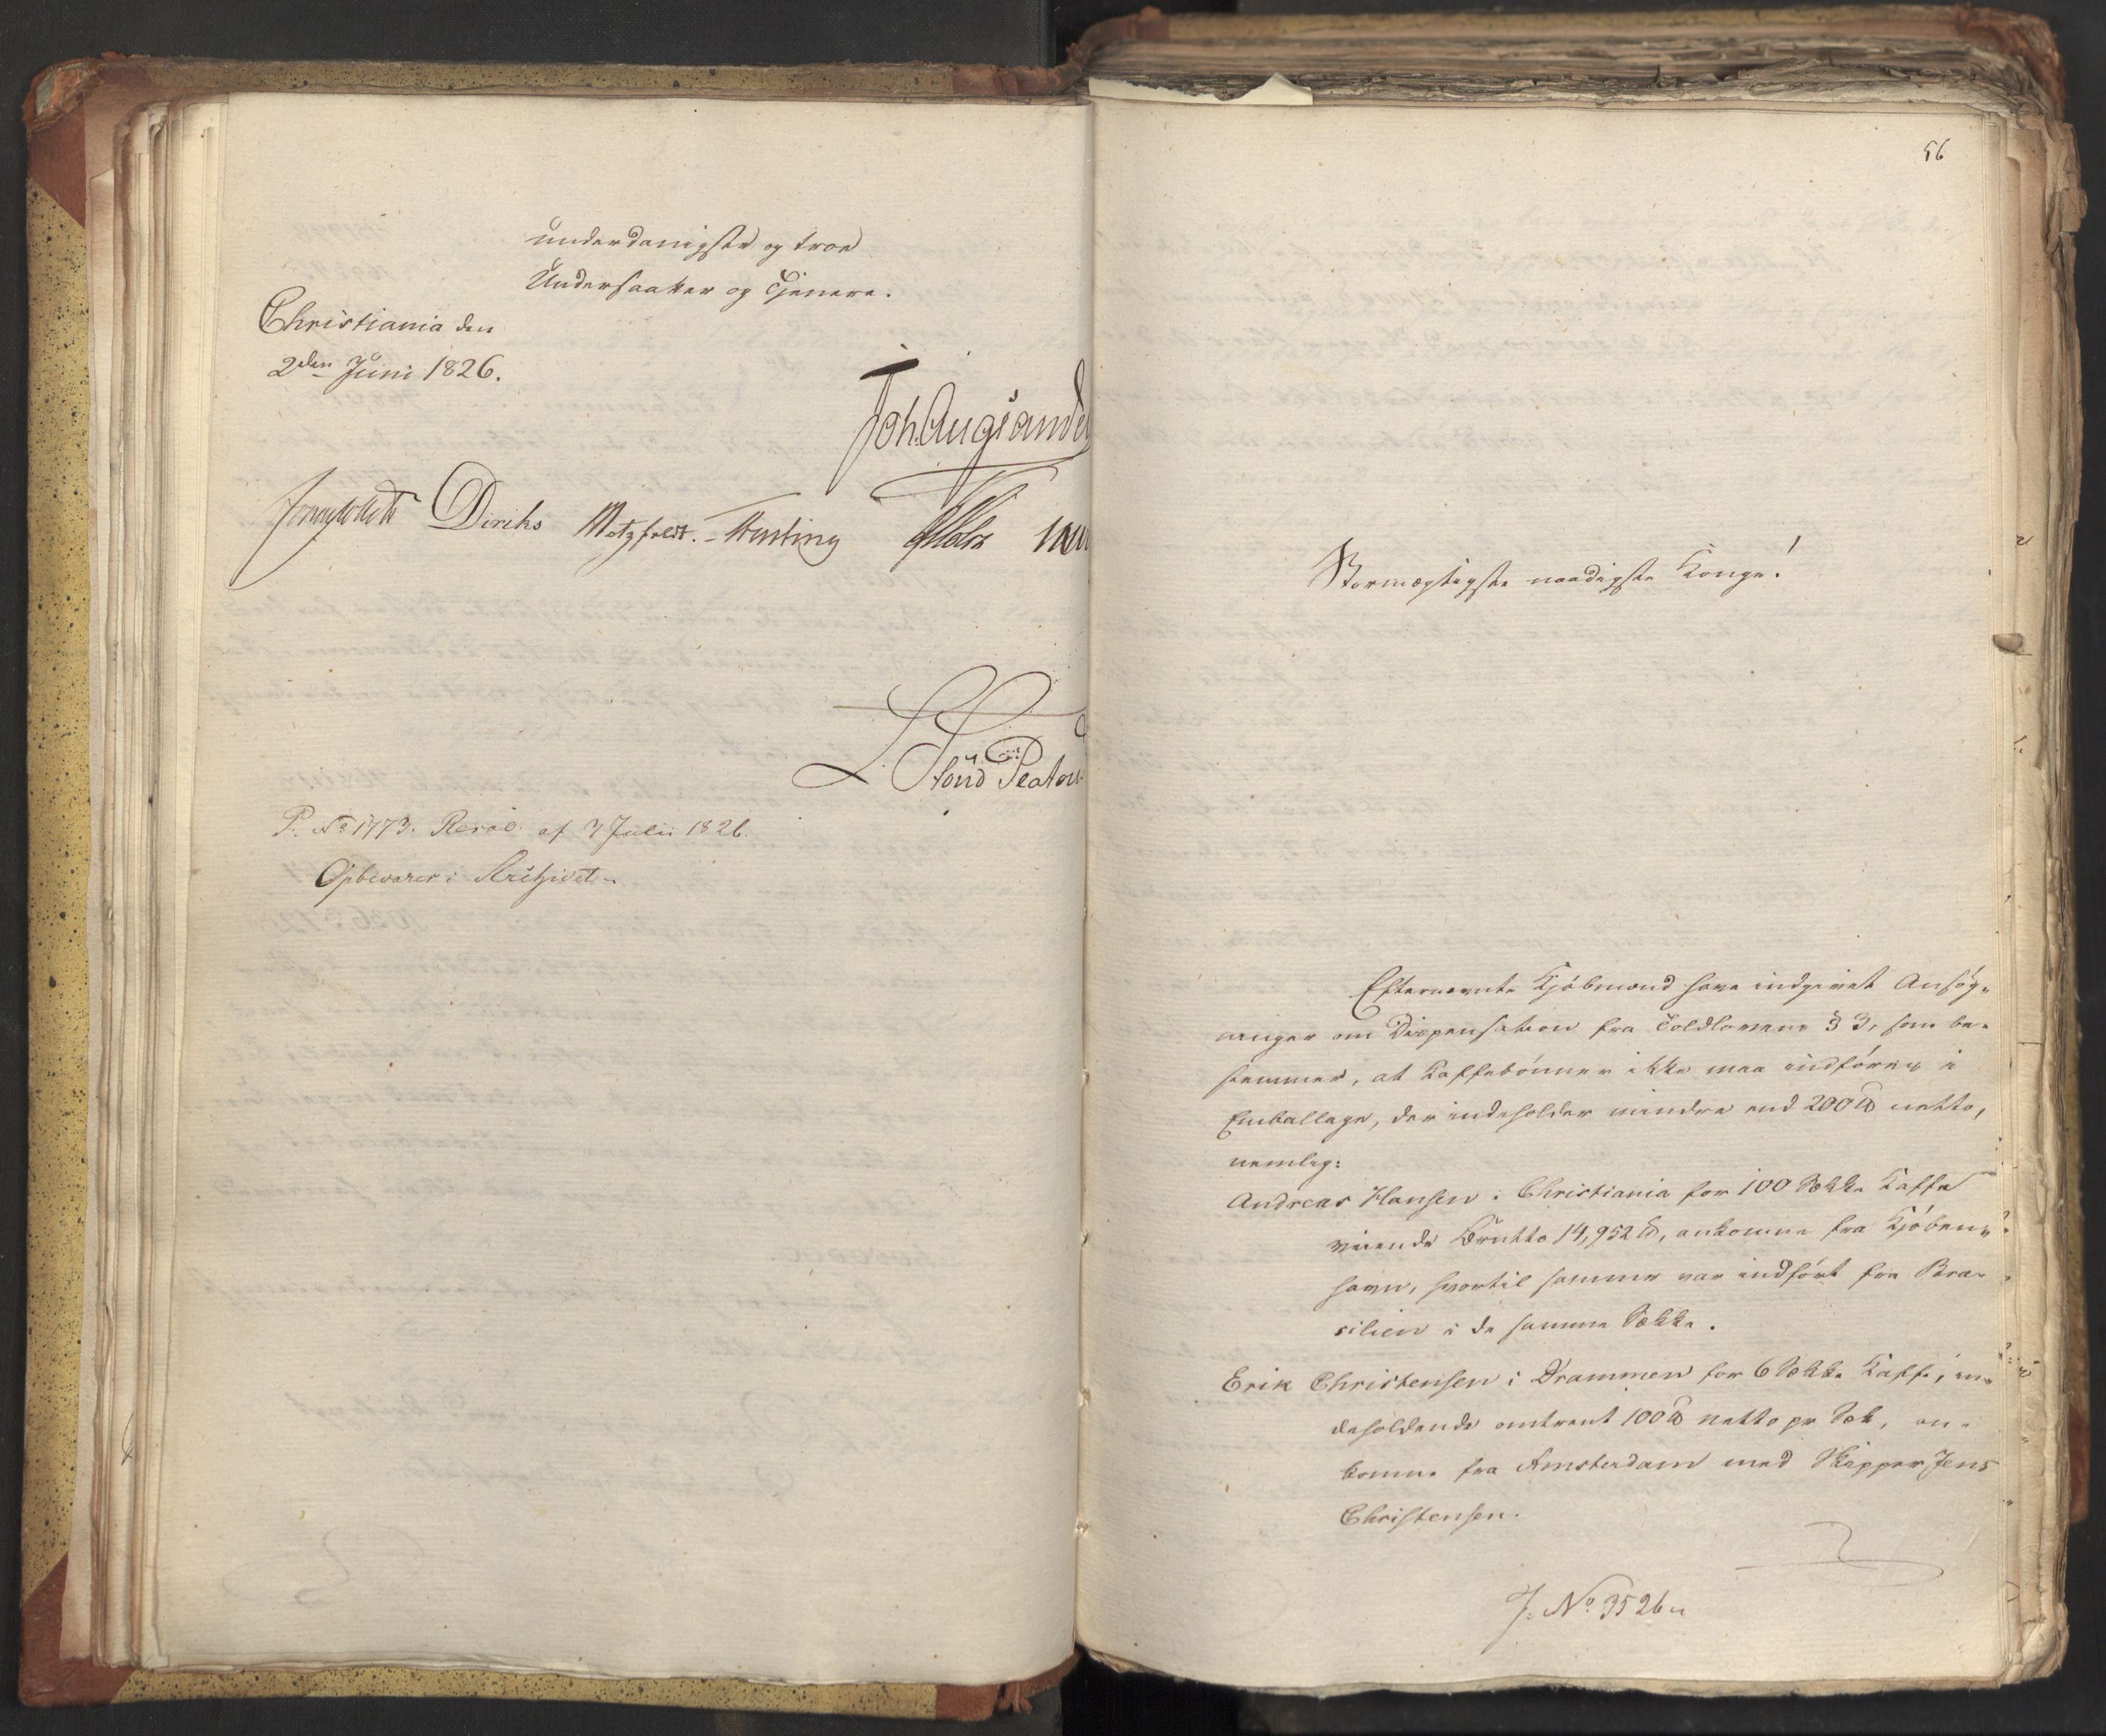 underdanigste og troe
Undersaatter og Tjenere.
Christiania den
2den Juni 1826.
Joh. Aug: Sande
Jonas Collett Diriks Motzfeldt.
L. Stoud Platou
P. No 1773. Resol. af 7 Julii 1826.
Opbevares i Archivet.
56
Stormægtigste naadigste Konge!
Efternævnte Kjøbmænd have indgivet Ansøg-
ninger om Dispensation fra Toldlovens § 3, som be-
stemmer, at Kaffebønner ikke maa indføres i
Emballage, der indeholder mindre end 200 ℔ netto,
nemlig:
Andreas Hansen i Christiania for 100 Sække Kaffe
veiende Brutto 14,952 ℔, ankomne fra Kjøben-
havn, hvortil samme var indført fra Bra-
silien i de samme Sække.
Erik Christensen i Drammen for 6 Sække Kaffe, in-
deholdende omtrent 100 ℔ netto pr Sæk, an-
komne fra Amsterdam med Skipper Jens
Christensen.
J. No 3526